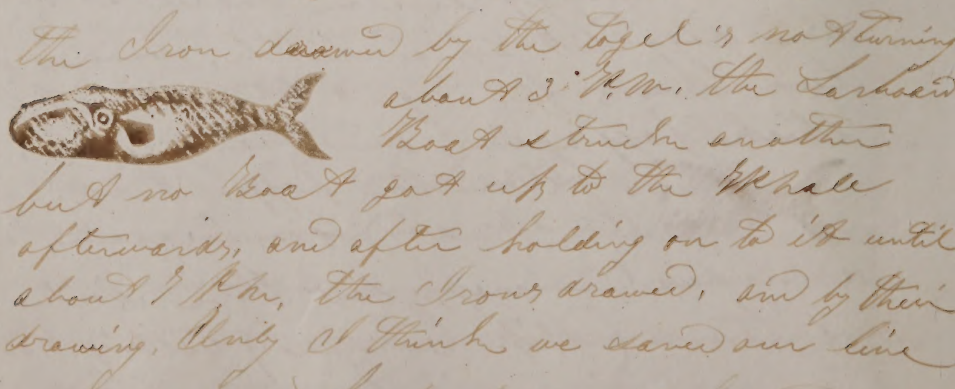 the Iron drawed by the togel's not turning
about 3 P.M. the Larboard
Boat struck another
but no Boat got up to the Whale
afterwards, and after holding on to it until
about P.M. the Irons drawed, and by their
drawing. Only I think we saved our line